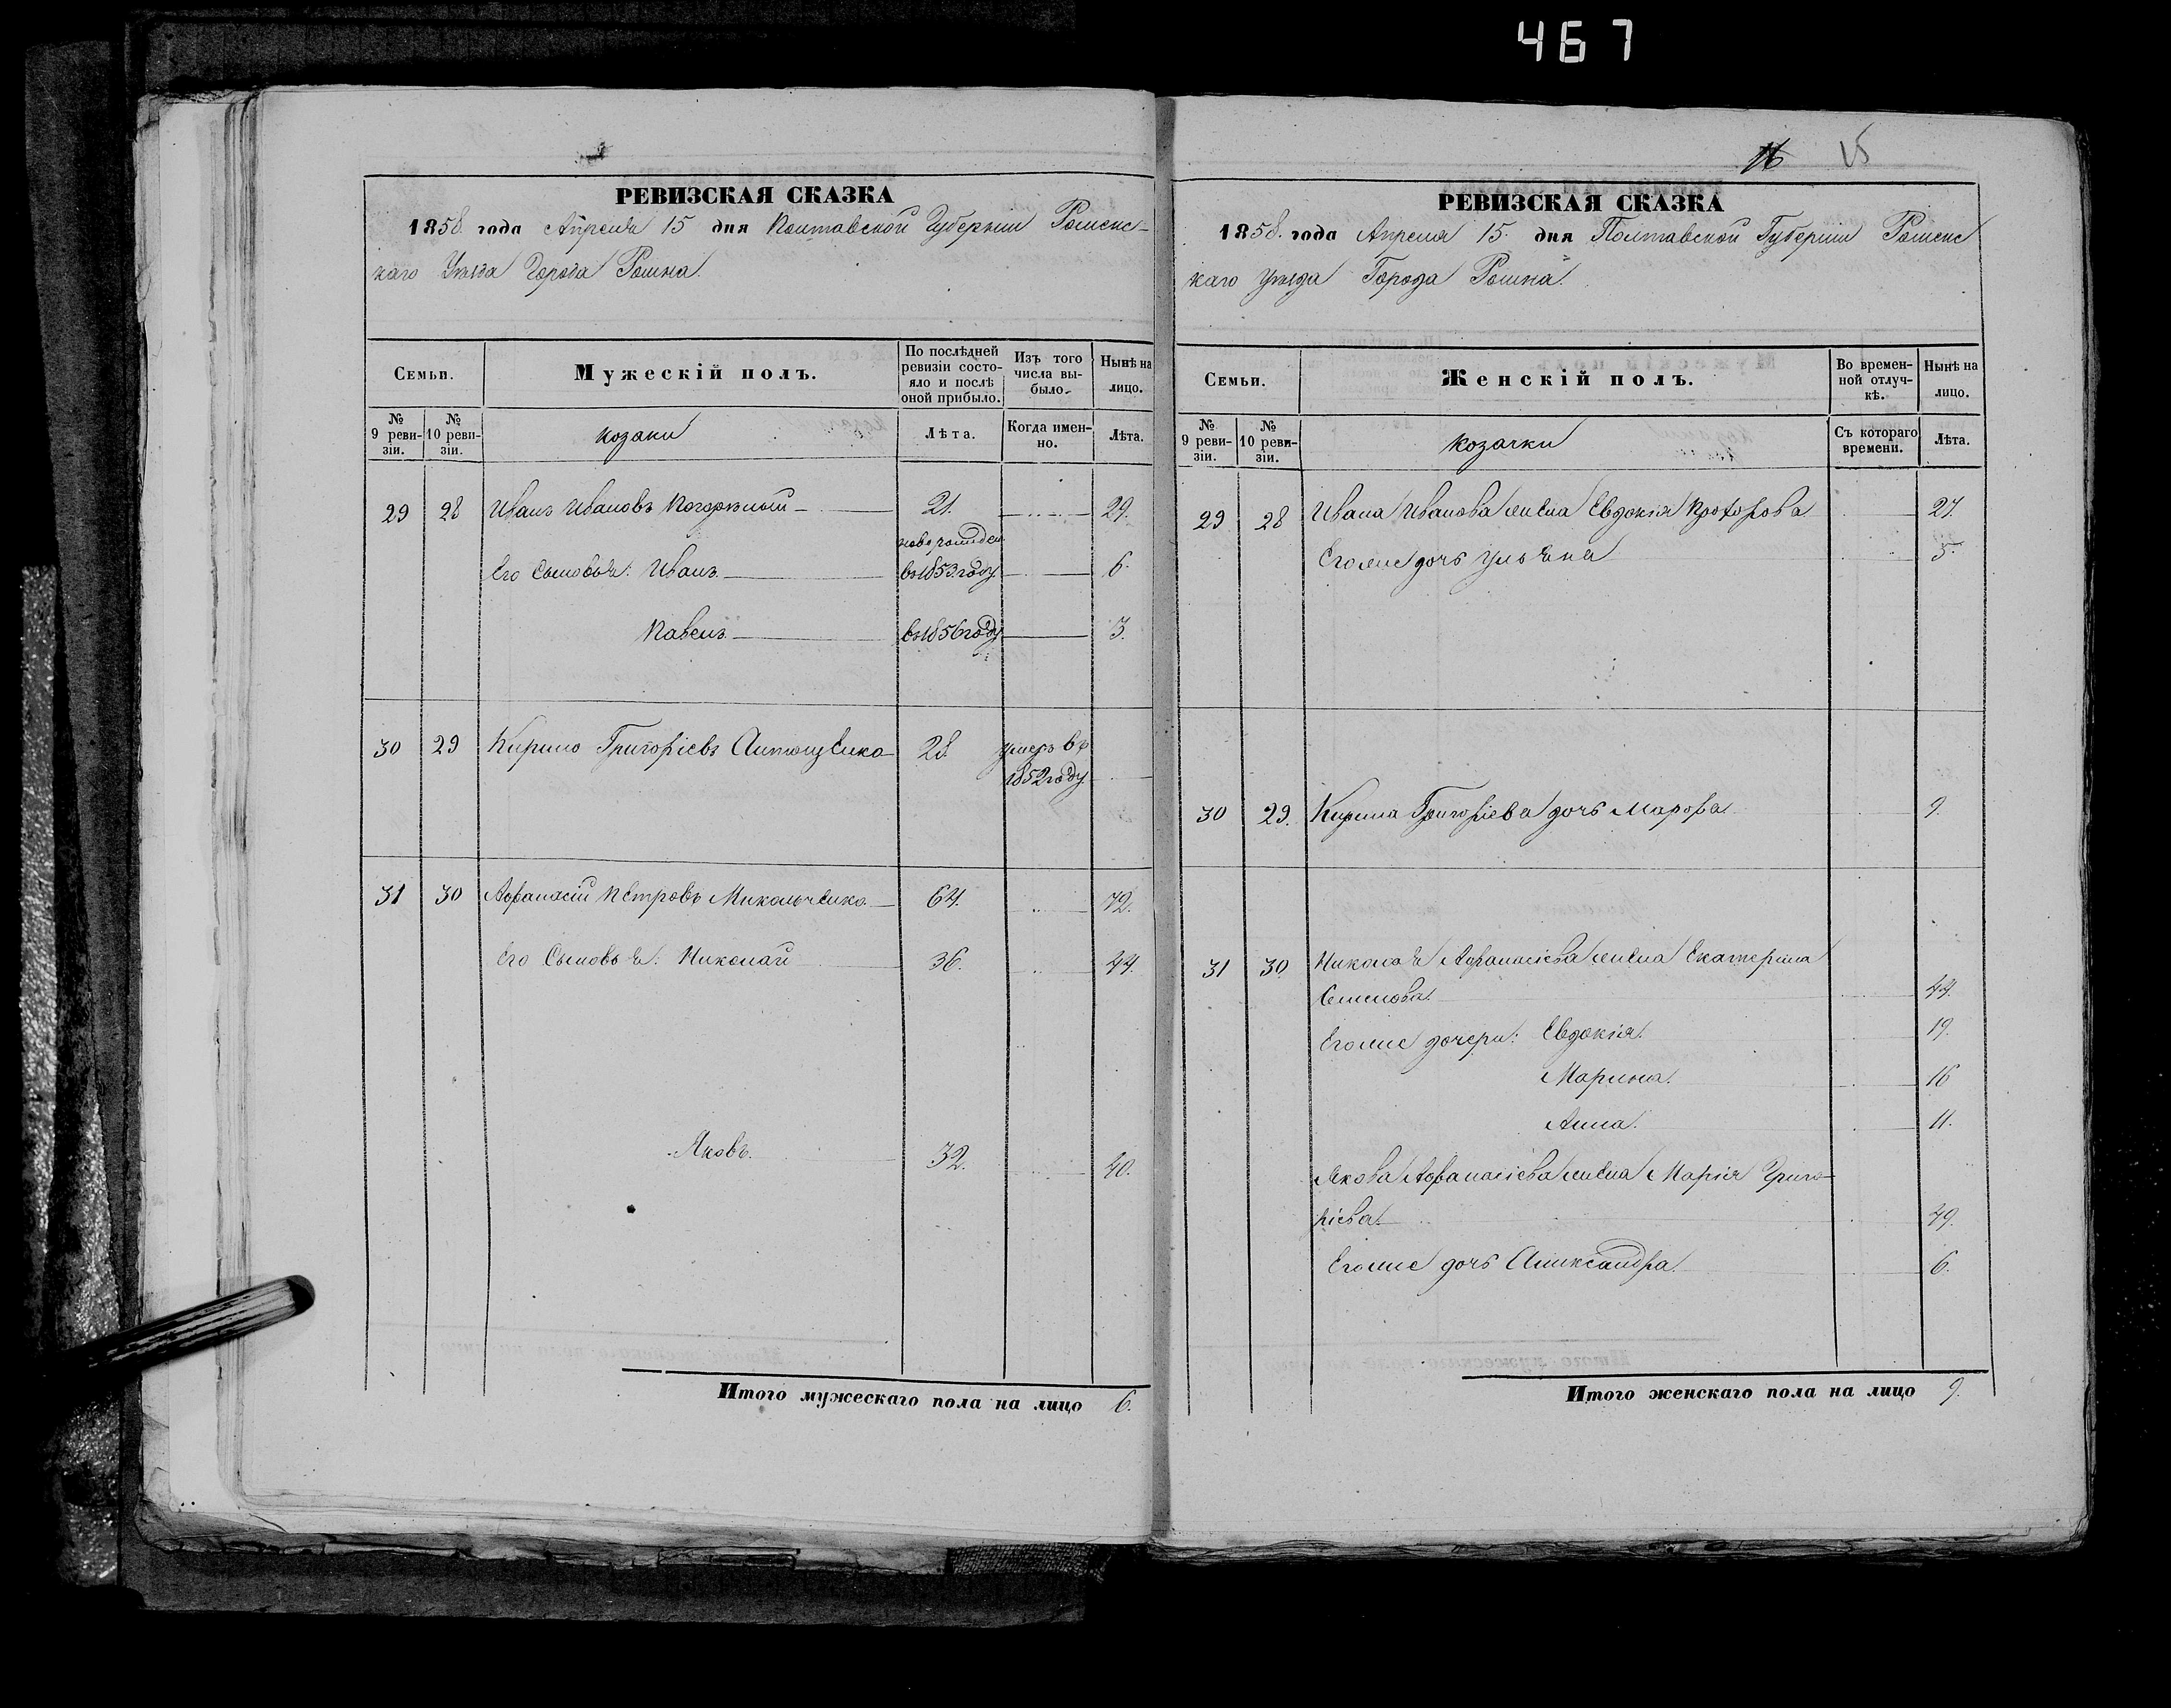 467
РЕВИЗСКАЯ СКАЗКА
1858. года Апреля 15 дня Полтавской Губернии Роменс-
каго Уезда Города Ромна.
Семьи.
Мужескій полъ.
По послѣдней ревизіи состо-яло и послѣ оной прибыло.
Изъ того числа вы-было.
Нынѣ на лицо.
№ 9 реви-зіи.
№ 10 реви-зіи.
козаки
Лѣта.
Когда имен-но.
Лѣта.
29 28 Иванъ Ивановъ 21. 29.
новорожден
Его Сыновья: Иванъ въ 1853 году 6.
Павелъ въ 1856 году 3.
30 29 Кирило Григоріевъ 28. умеръ въ
1852 году
31 30 Афанасій Петровъ Микольченко 64. 72.
Его Сыновья: Николай 36. 44.
Яковъ. 32. 40.
Итого мужескаго пола на лицо 6.
16 15
РЕВИЗСКАЯ СКАЗКА
1858. года Апреля 15. дня Полтавской Губернии Роменс
каго уезда Города Ромна.
Семьи.
Женскій полъ.
Во времен-ной отлуч-кѣ.
Нынѣ на лицо.
№ 9 реви-зіи.
№ 10 реви-зіи.
козачки
Съ котораго времени.
Лѣта.
29 28 Ивана Иванова жена Евдокія Прохорова 27.
Его же дочь Ульяна 5.
30 29. Кирила Григоріева дочь Марфа 9.
31 30. Николая Афанасіева жена Екатерина
Семенова. 44.
Его же дочери: Евдокія. 19.
Марина. 16
Анна. 11.
Якова Афанасіева жена Марія Григо-
ріева. 49.
Его же дочь Александра 6.
Итого женскаго пола на лицо 9.